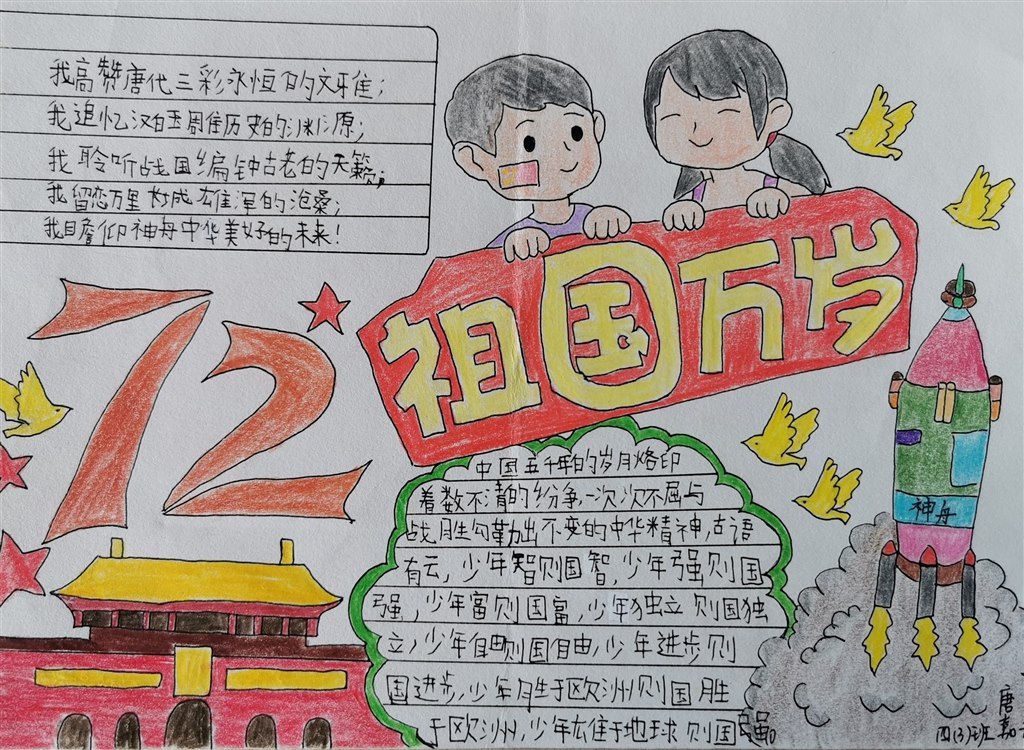 我高赞唐代三彩永恒的文雅；
我追忆汉白玉周住历史的冰凉；
我聆听战国编钟古老的天籁；
我留恋万里长城雄浑的沧桑；
我瞻仰神舟中华美好的未来！
72
祖国万岁
中国五千年的岁月烙印
着数不清的纷争，一次次不屈与
战胜勾勒出不变的中华精神，古语
有云，少年智则国智，少年强则国
强，少年富则国富，少年独立则国独
立，少年自由则国自由，少年进步则
国进步，少年胜于欧洲则国胜
于欧洲，少年雄于地球则国
神舟
唐嘉
四(3)班